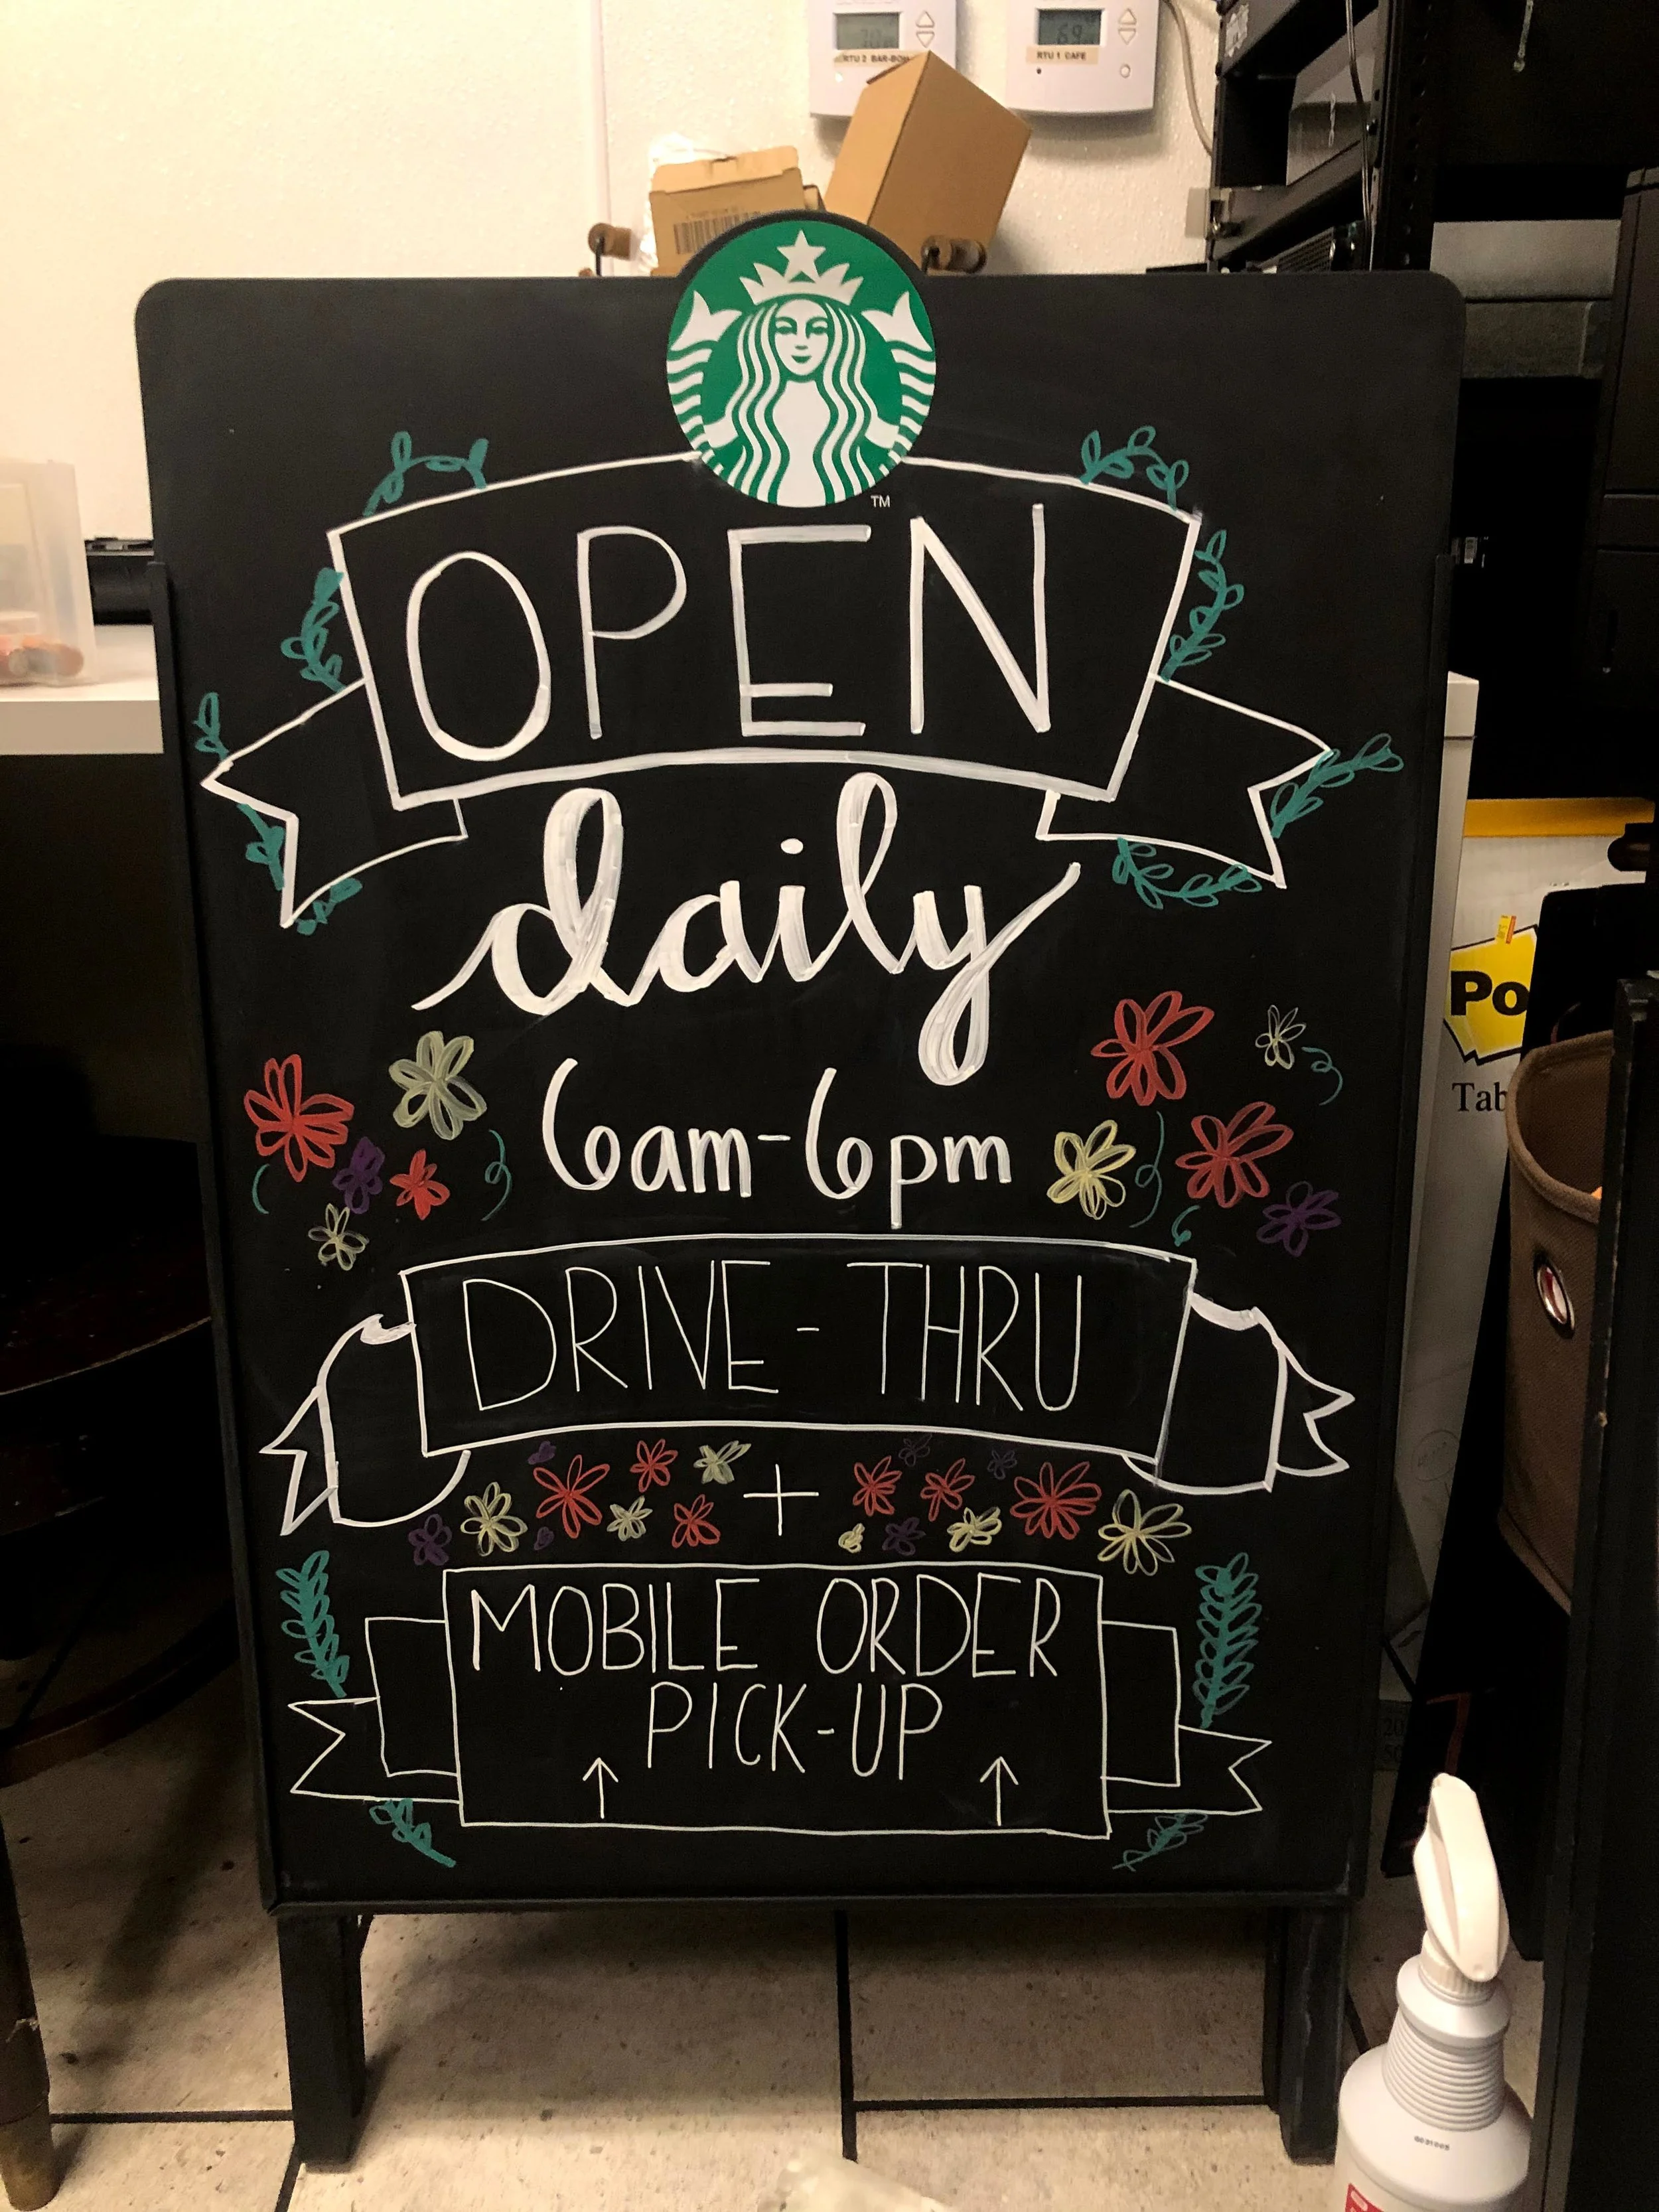 RTU 2 BAR-BOH
RTU 1 CAFE
69
TM
OPEN
daily
6am-6pm
DRIVE-THRU
+
MOBILE ORDER
PICK-UP
Po
Tab